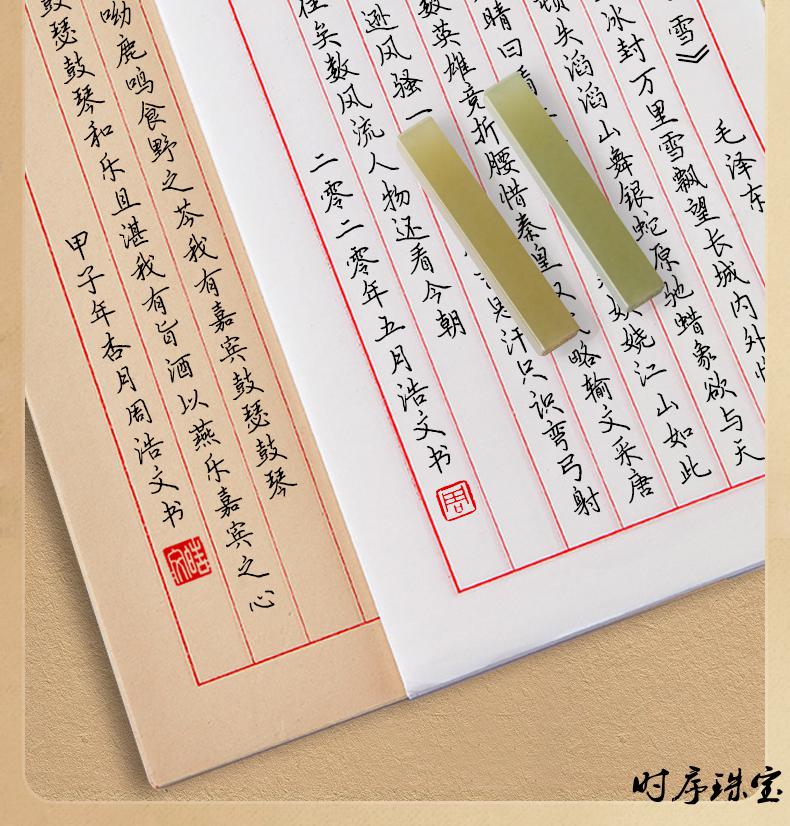 雪》毛泽东
冰封万里雪飘望长城内外
顿失滔滔山舞银蛇原驰蜡象欲与天
晴日看妖娆江山如此
数英雄竞折腰惜秦皇汉武略输文采唐
逊风骚一汗只识弯弓射
往矣数风流人物还看今朝
二零二零年五月浩文书
周
呦鹿鸣食野之芩我有嘉宾鼓瑟鼓琴
鼓瑟鼓琴和乐且湛我有旨酒以燕乐嘉宾之心
甲子年杏月周浩文书
浩文
时序珠宝